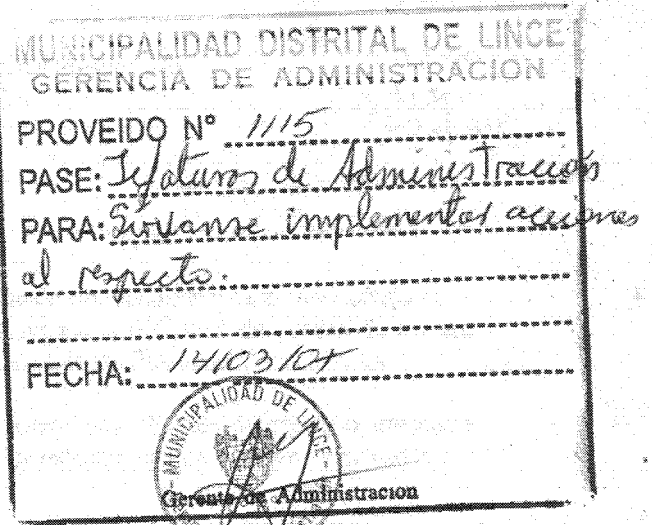 MUNICIPALIDAD DISTRITAL DE LINCE
GERENCIA DE ADMINISTRACION
PROVEIDO N° 1115
PASE: Jefaturas de Administración
PARA: Sírvanse implementar acciones
al respecto.
FECHA: 14/03/07
MUNICIPALIDAD DE LINCE
Gerente de Administracion